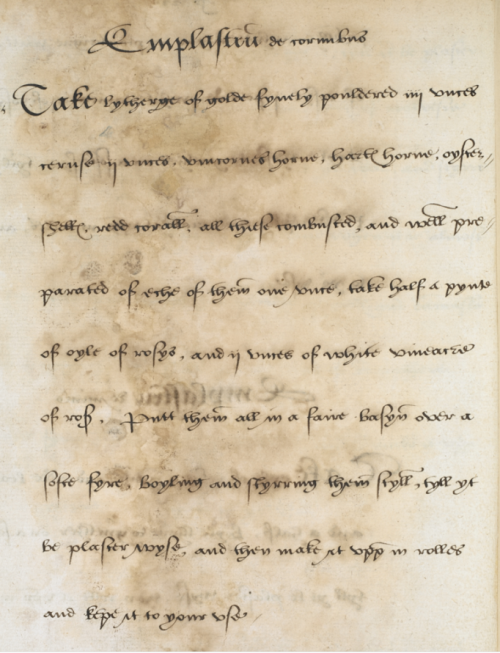 Emplastrū de cornibus
Take lytherge of golde fynely pouldered iiij vnces
ceruse ij vnces, vnicornes horne, hartꝭ horne, oyster⸗
shellꝭ, redd corall, all thiese combusted, and well pre⸗
parated of eche of them̄ one vnce, take half a pynte
of oyle of rosys, and ij vnces of white vineacre
of rosꝭ, Putt them̄ all in a faire basyn̄ over a
softe fyre, boyling and styrring them̄ styll, tyll yt
be plaster wyse, and then make it vpp in rolles
and kepe it to your vse